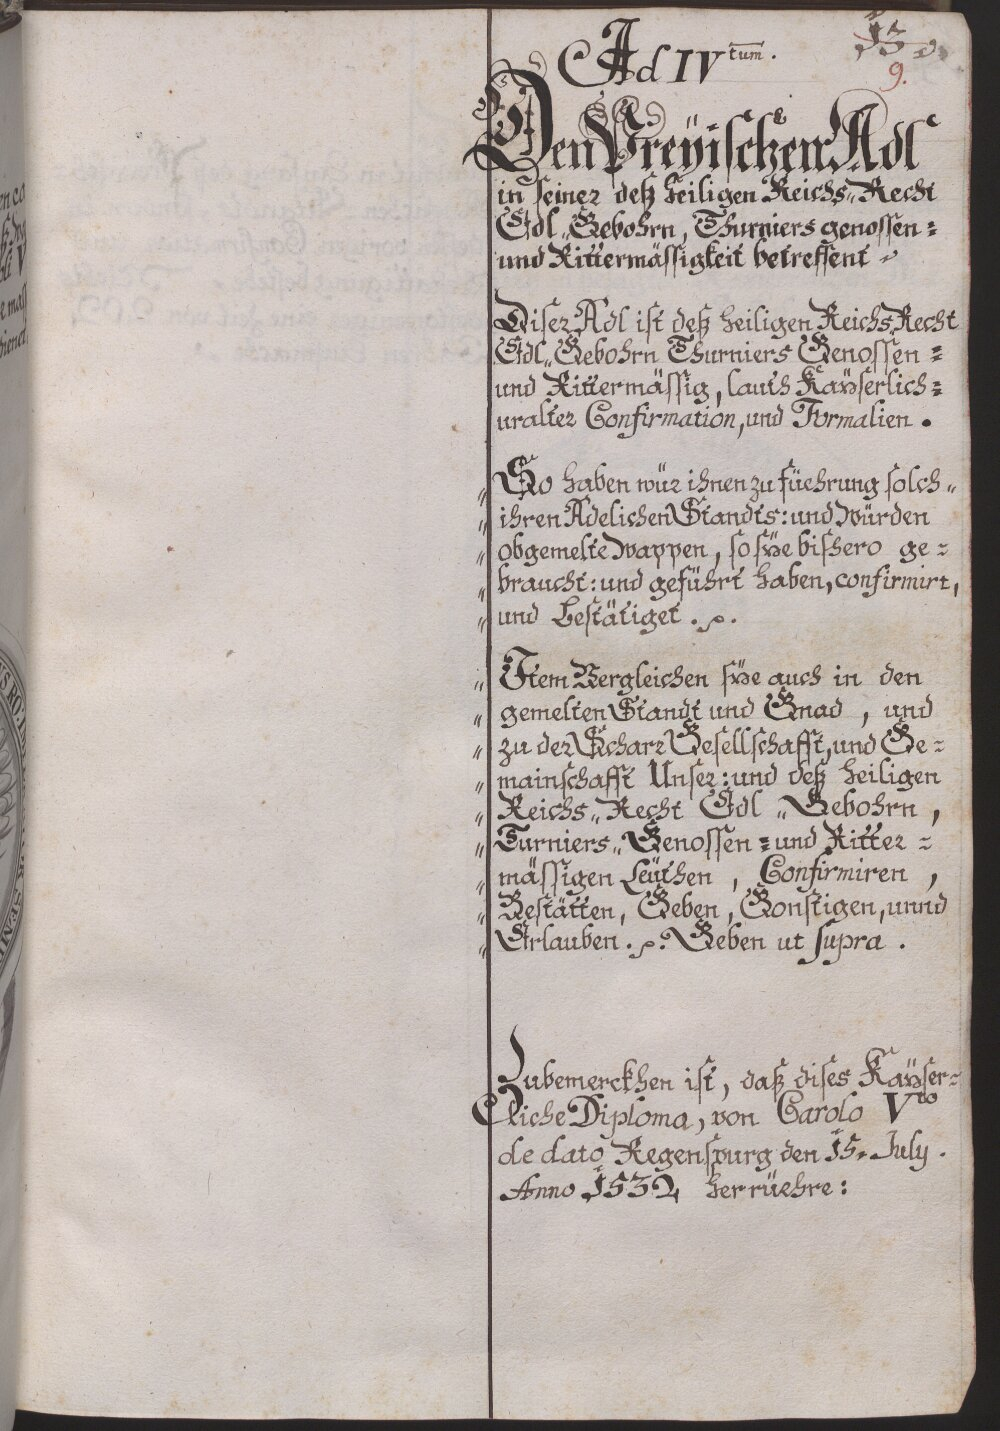 Ad IV tum.
13
9.
Den Preÿischen Adl
in seiner deß heiligen Reichs„ Recht
Edl„ Gebohrn, Thurniers genossen =
und Rittermässigkeit betreffent
Diser Adl ist deß heiligen Reichs Recht
Edl„ Gebohrn Thurniers Genossen =
und Rittermässig, lauth Kaÿserlich =
uralter Confirmation, und Formalien.
„ So haben wür ihnen zu füehrung solch„
„ ihren Adelichen Standts: und Würden
„ obgemelte Wappen, so sÿe bishero ge =
„ braucht: und geführt haben, confirmirt,
„ und bestätiget.
„ Item Vergleichen sÿe auch in den
„ gemelten Standt und Gnad, und
„ zu der Schar Gesellschafft, und Ge =
„ mainschafft Unser: und deß heiligen
„ Reichs„ Recht Edl„ Gebohrn,
„ Turniers„ Genossen = und Ritter =
„ mässigen Leüthen, Confirmiren,
„ Bestätten, Geben, Gonstigen, unnd
„ Erlauben. Geben ut supra.
Zubemerckhen ist, daß dises Kaÿser =
liche Diploma, von Carolo Vto
de dato Regenspurg den 15. July.
Anno 1532 herrüehre: